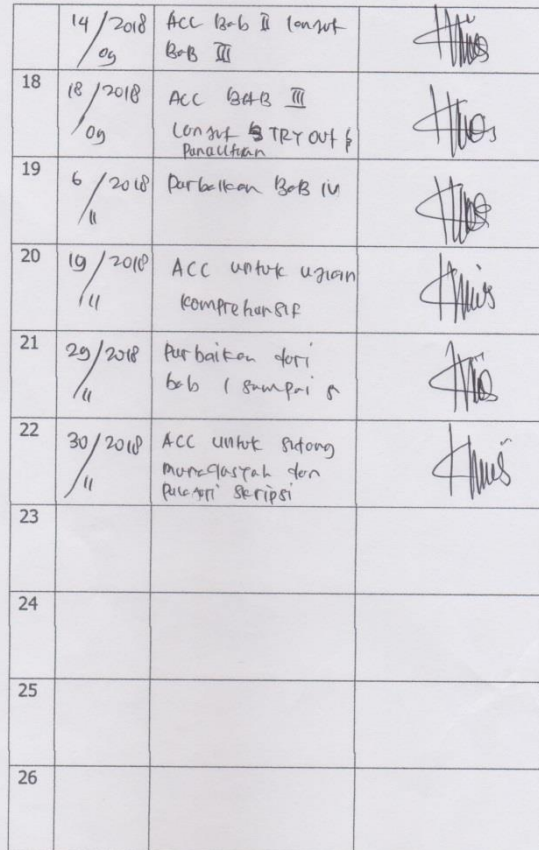 14/09 2018 ACC Bab II lanjut
BAB III
18 18/09 2018 ACC BAB III
Lanjut TRY OUT &
Penelitian
19 6/11 2018 Perbaikan BAB IV
20 19/11 2018 ACC untuk ujian
Komprehensif
21 29/11 2018 Perbaikan dari
bab 1 sampai 5
22 30/11 2018 ACC untuk sidang
munaqasyah dan
skripsi
23
24
25
26